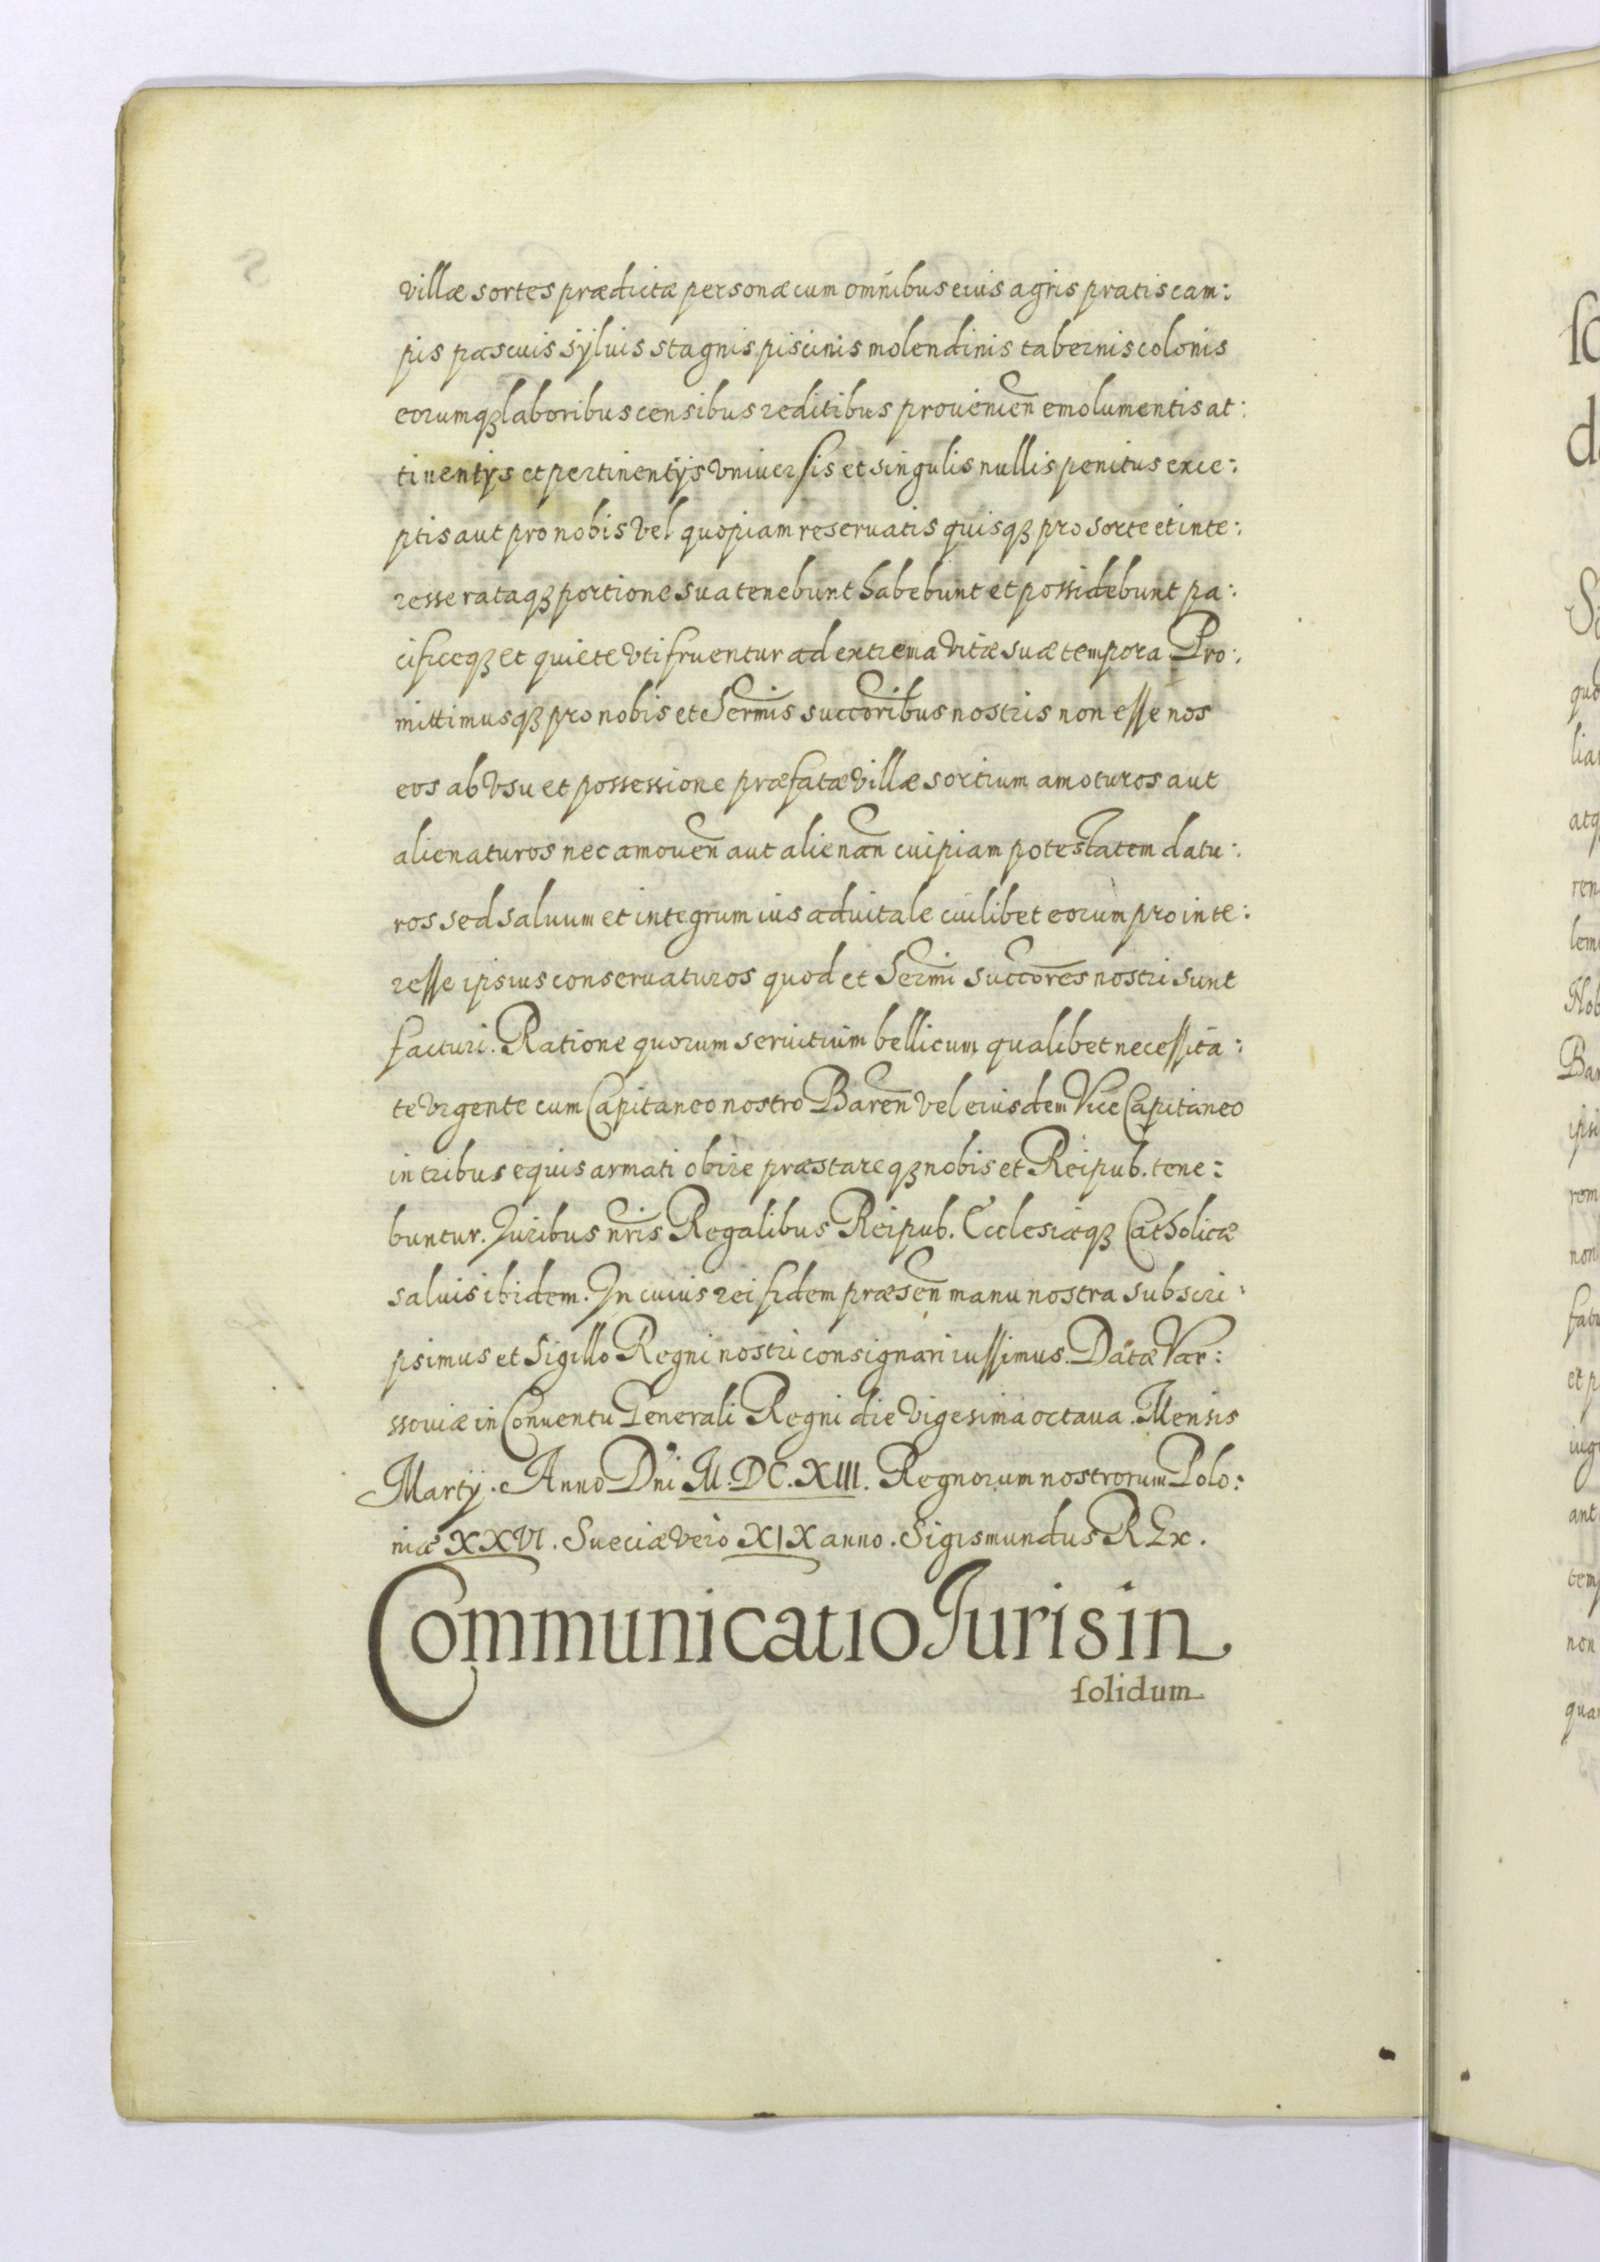 villæ sortes prædictæ personæ cum omnibus eius agris pratis cam:
pis pascuis syluis stagnis piscinis molendinis tabernis colonis
eorumqꝫ laboribus censibus reditibus prouenien̄ emolumentis at:
tinentijs et pertinentijs vniuersis et singulis nullis penitus exce:
ptis aut pro nobis vel quopiam reseruatis quisqꝫ pro sorte et inte:
resse rataqꝫ portione sua tenebunt habebunt et possidebunt pa:
cificeqꝫ et quiete vti fruentur ad extrema vitæ suæ tempora Pro:
mittimusqꝫ pro nobis et Sermis succoribus nostris non esse nos
eos ab vsu et possessione præfatæ villæ sortium amoturos aut
alienaturos nec amouen̄ aut alienan̄ cuipiam potestatem datu:
ros sed saluum et integrum ius aduitale cuilibet eorum pro inte:
resse ipsius conseruaturos quod et Sermi Succores nostri sunt
facturi. Ratione quorum seruitium bellicum qualibet necessita:
te vrgente cum Capitaneo nostro Baren̄ vel eiusdem Vice Capitaneo
in tribus equis armati obire præstareqꝫ nobis et Reipub. tene:
buntur. Iuribus nris Regalibus Reipub. Ecclesiæqꝫ Catholicæ
saluis ibidem. In cuius rei fidem præsen̄ manu nostra subscri:
psimus et Sigillo Regni nostri consignari iussimus. Datæ Var:
ssouiæ in Conuentu Generali Regni die vigesima octaua. Mensis
Martij. Anno Dni M.DC.XIII. Regnorum nostrorum Polo:
niæ XXVI. Sueciæ vero XIX anno. Sigismundus REx.
Communicatio Iuris in
solidum